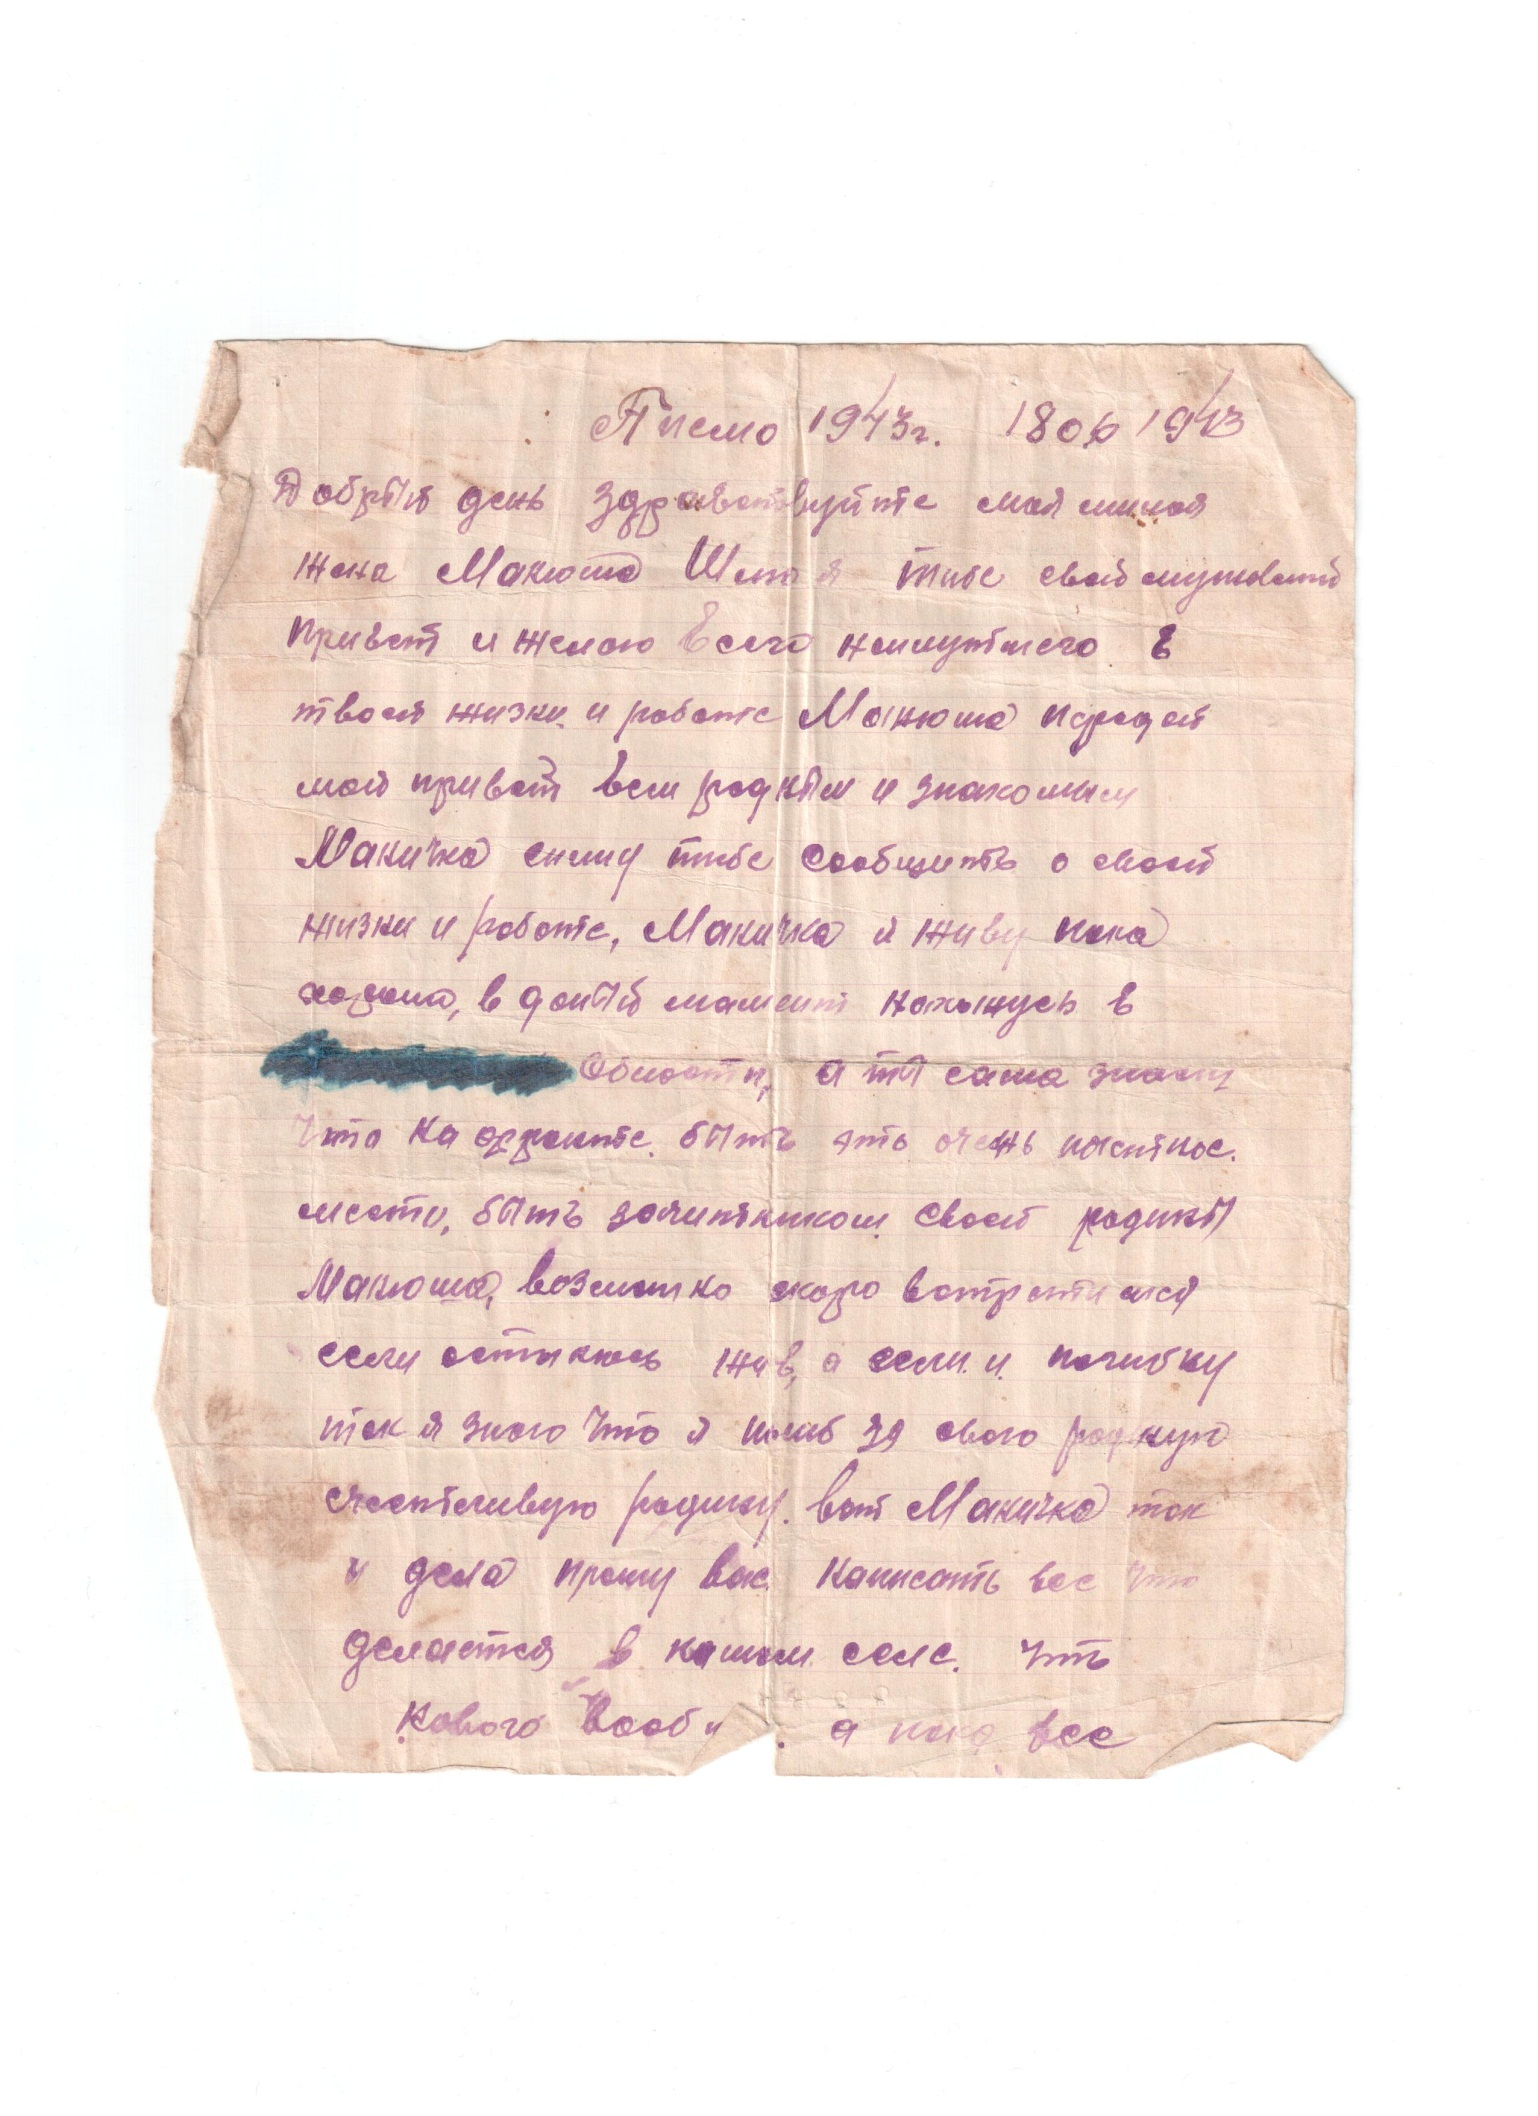 Писмо 1943г. 1806 1943
Добрый день здравствуйте моя милая
жена Манюша Шлю я тибе свой мужовский
привет и желаю всего наилутшего в
твоей жизни и работе Манюша передай
мой привет всем родным и знакомым
Маничка спешу тибе сообщить о своей
жизни и работе, Маничка я живу пока
хорошо, в даный мамент нахожусь в
Области, а ты сама знаеш
что на фронте. быть это очень
место, быть зашитником своей родины
Манюша, возможно скоро встретимся
если останюсь жив, а если и погибну
так я знаю что я погиб за свою родную
счастливую родину. вот Маничка так
и дела прошу вас написать все что
делается в нашем селе. что
нового вооб а пока все